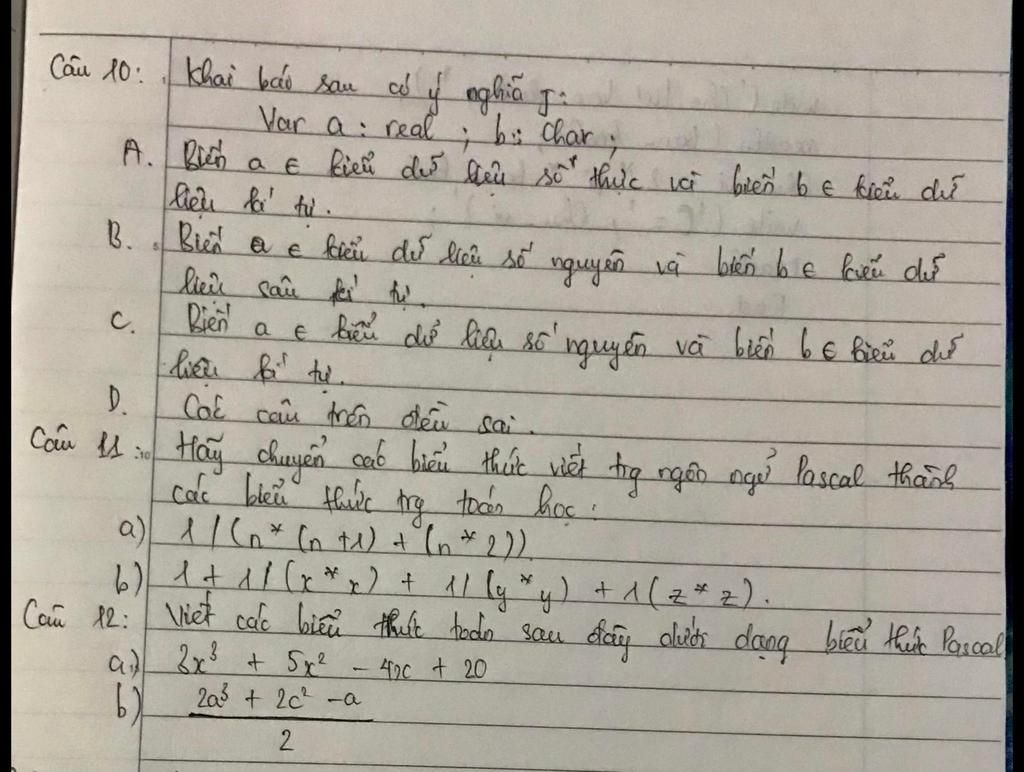 Câu 10: Khai báo sau có ý nghĩa j:
Var a : real ; b : Char ;
A. Biến a ∈ kiểu dữ liệu số thực và biến b ∈ kiểu dữ
liệu kí tự.
B. Biến a ∈ kiểu dữ liệu số nguyên và biến b ∈ kiểu dữ
liệu sâu kí tự.
C. Biến a ∈ kiểu dữ liệu số nguyên và biến b ∈ kiểu dữ
liệu kí tự.
D. Các câu trên đều sai.
Câu 11: Hãy chuyển các biểu thức viết trg ngôn ngữ Pascal thành
các biểu thức trg toán học:
a) 1/(n*(n+1) + (n*2))
b) 1 + 1/(x*x) + 1/(y*y) + 1(z*z).
Câu 12: Viết các biểu thức toán sau đây dưới dạng biểu thức Pascal
a) 3x³ + 5x² - 42c + 20
b) 2a³ + 2c² - a
2